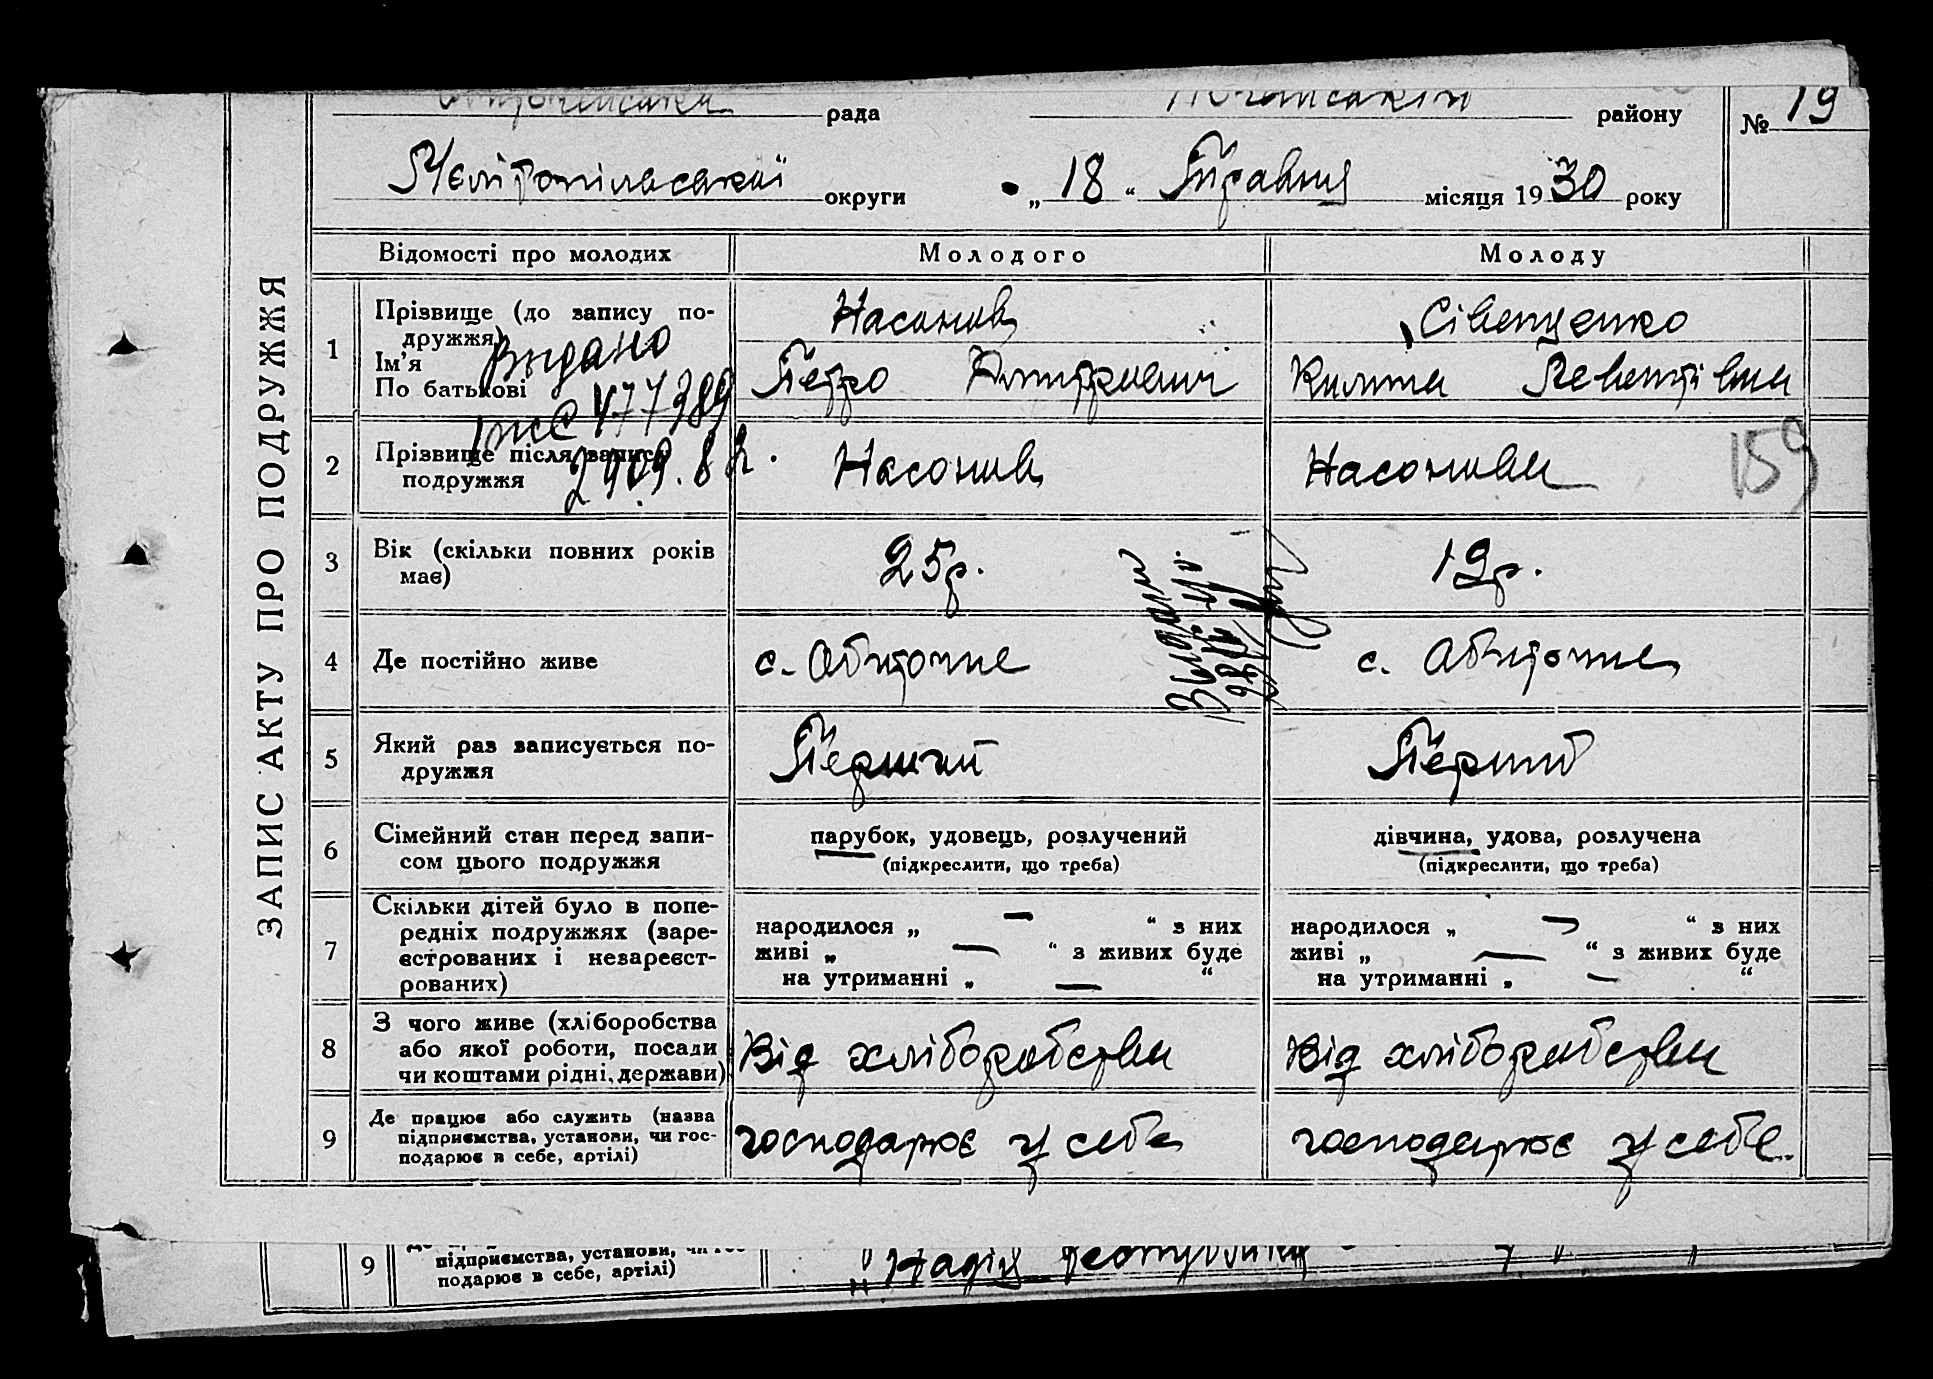 рада району № 19
Мелітопільської округи „ 18 “ Травня місяця 1930 року
ЗАПИС АКТУ ПРО ПОДРУЖЖЯ
Відомості про молодих Молодого Молоду
1 Прізвище (до запису по-
дружжя)
Ім'я
По батькові
Насонов
Петро Дмитрович
Левентівна
Видано
477389
2 Прізвище після запису
подружжя
Насонов Насонова
159
3 Вік (скільки повних років
має)
25 р. 19 р.
4 Де постійно живе с. Обиточне с. Обиточне
5 Який раз записується по-
дружжя
Перший Перший
6 Сімейний стан перед запи-
сом цього подружжя
парубок, удовець, розлучений
(підкреслити, що треба)
дівчина, удова, розлучена
(підкреслити, що треба)
7 Скільки дітей було в попе-
редніх подружжях (заре-
єстрованих і незареєст-
рованих)
народилося „ — “ з них
живі „ — “ з живих буде
на утриманні „ — “
народилося „ — “ з них
живі „ — “ з живих буде
на утриманні „ — “
8 З чого живе (хліборобства
або якої роботи, посади
чи коштами рідні, держави)
Від хліборобства Від хліборобства
9 Де працює або служить (назва
підприємства, установи, чи гос-
подарює в себе, артілі)
господарює у себе господарює у себе
9 підприємства, установи, чи гос-
подарює в себе, артілі)
„Надія